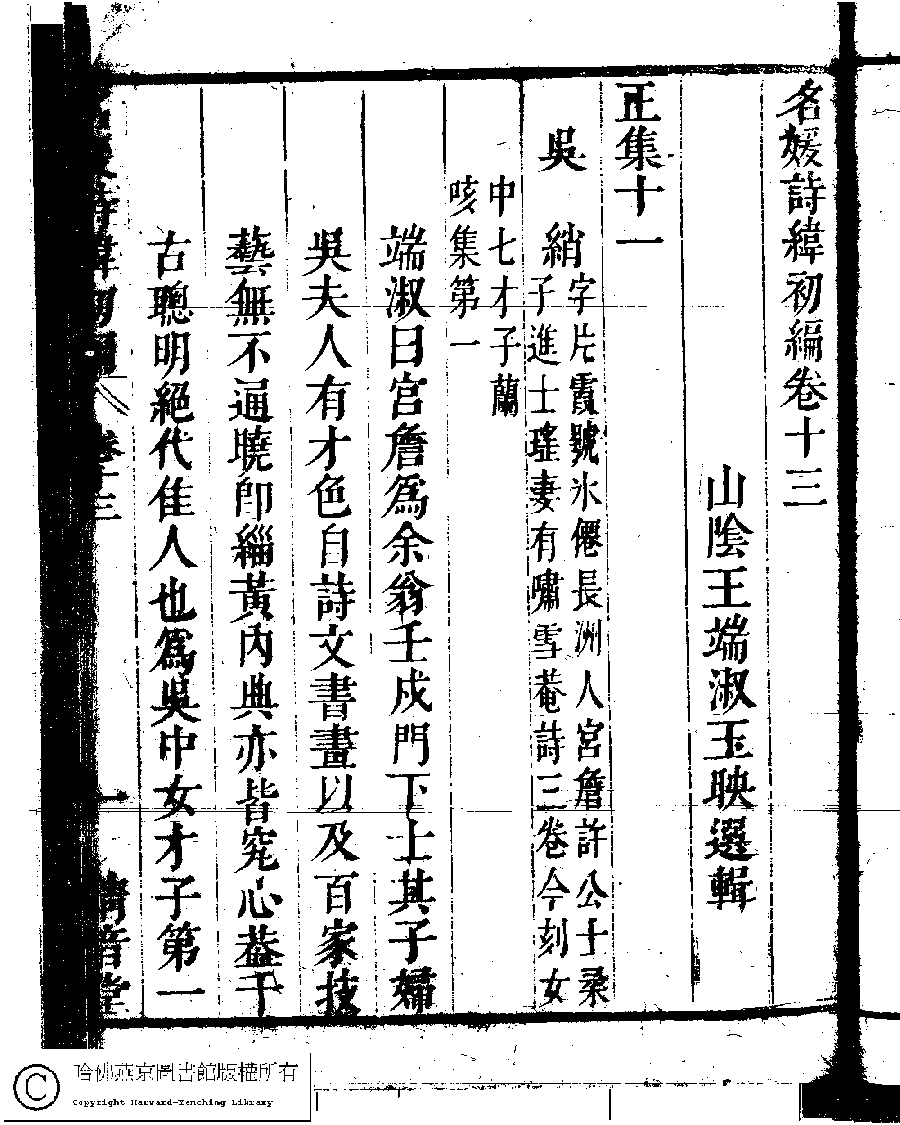 名媛詩緯初編卷十三
山陰王端淑玉映選輯
正集十一
吳綃
字片霞號氷僊長洲人宮詹許公士柔
子進士瑤妻有嘯雪菴詩三卷今刻女
中七才子蘭
咳集第一
端淑曰宮詹爲余翁壬戌門下士其子婦
吳夫人有才色自詩文書畫以及百家技
藝無不通曉卽緇黃內典亦皆究心葢千
古聰明絕代佳人也爲吳中女才子第一
詩緯初編
卷十三
一
清音堂
哈佛燕京圖書館版權所有
Copyright Harvard-Yenching Library